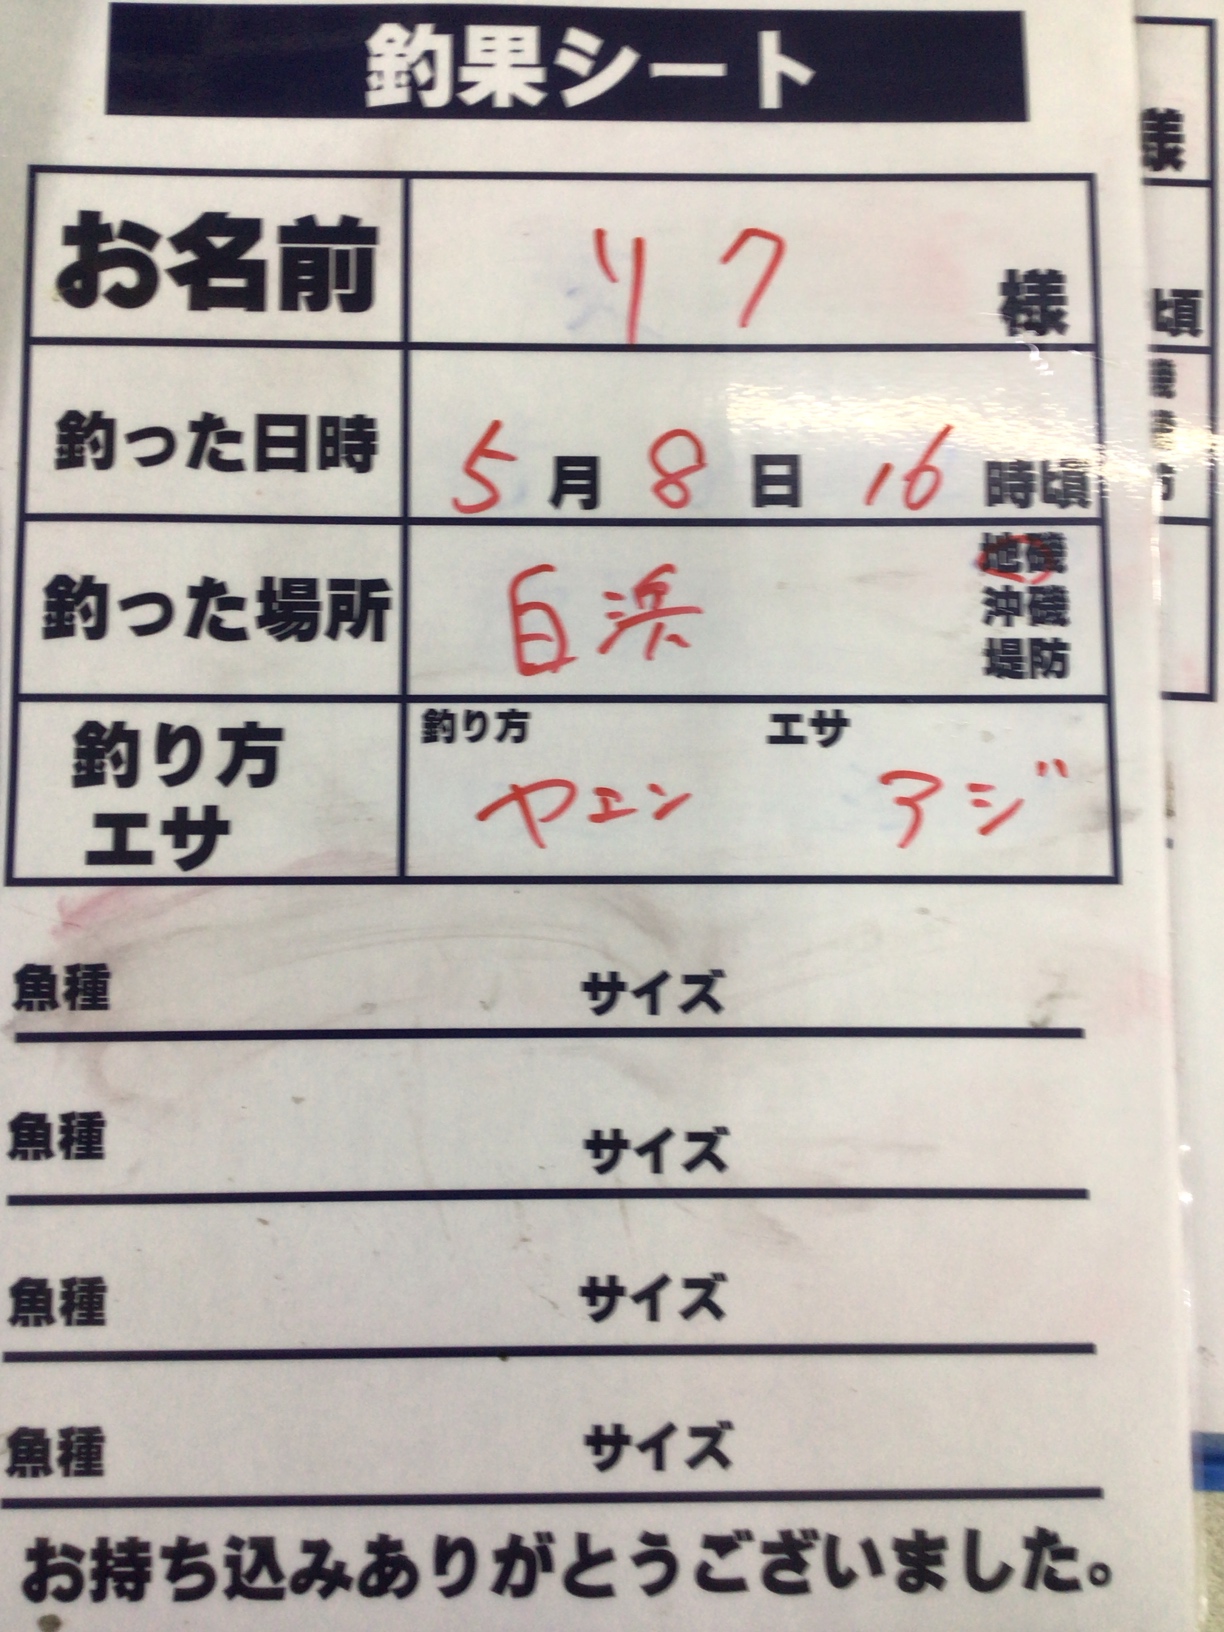 釣果シート
お名前 リク 様
釣った日時 5月8日16時頃
釣った場所 白浜 地磯
沖磯
堤防
釣り方 エサ
釣り方 ヤエン エサ アジ
魚種 サイズ
魚種 サイズ
魚種 サイズ
魚種 サイズ
お持ち込みありがとうございました。
様
頃
磯